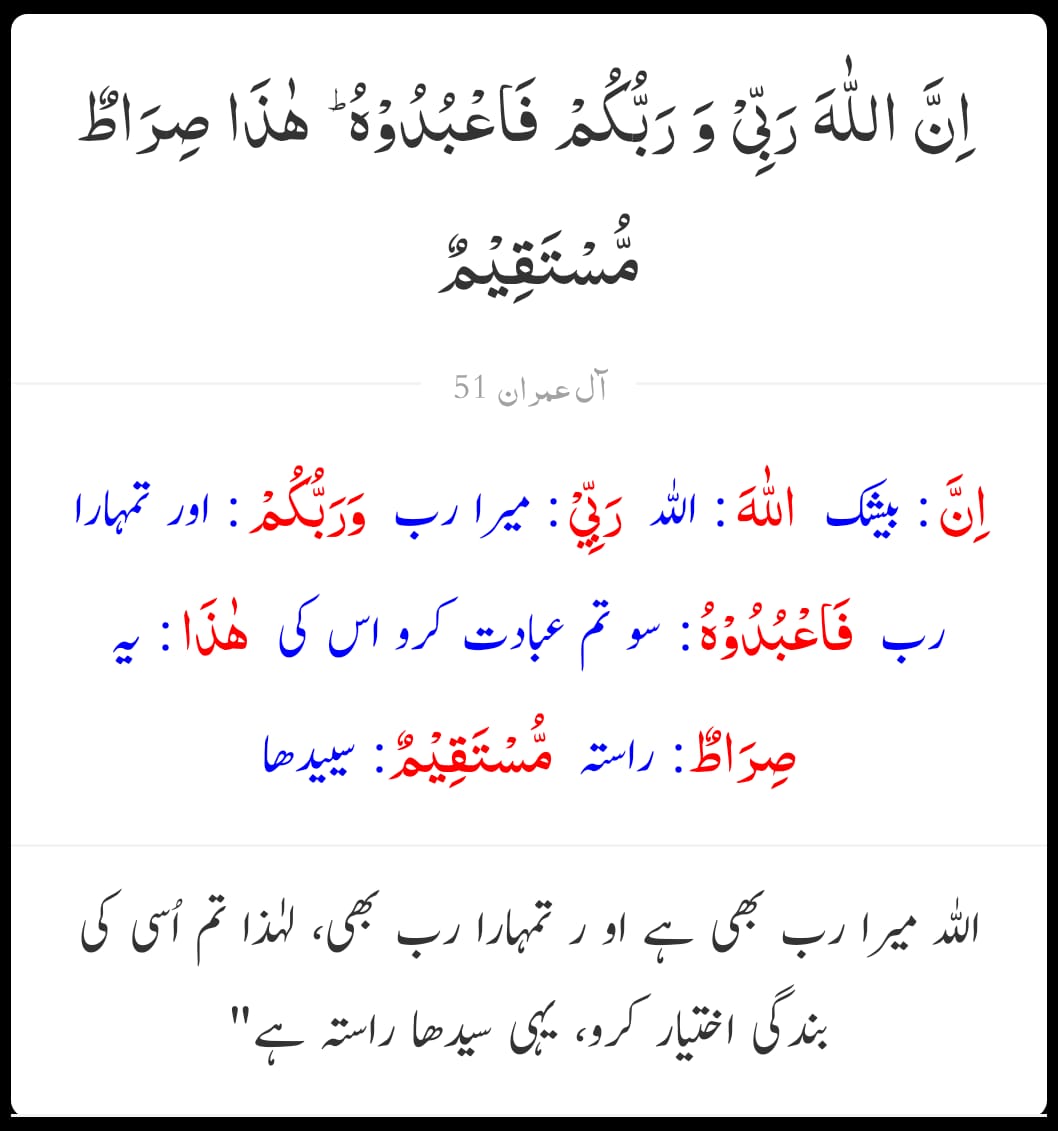 اِنَّ اللّٰهَ رَبِّیْ وَ رَبُّكُمْ فَاعْبُدُوْهُ ؕ هٰذَا صِرَاطٌ
مُّسْتَقِیْمٌ
آل عمران 51
اِنَّ : بیشک اللّٰهَ : اللہ رَبِّيْ : میرا رب وَرَبُّكُمْ : اور تمہارا
رب فَاعْبُدُوْهُ : سو تم عبادت کرو اس کی ھٰذَا : یہ
صِرَاطٌ : راستہ مُّسْتَقِيْمٌ : سییدھا
اللہ میرا رب بھی ہے او ر تمہارا رب بھی، لہٰذا تم اُسی کی
بندگی اختیار کرو، یہی سیدھا راستہ ہے"